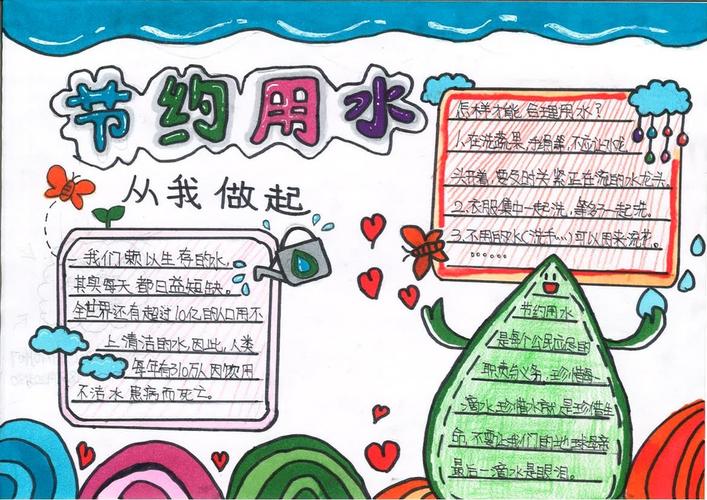 节约用水
从我做起
我们赖以生存的水,
其实每天都日益短缺。
全世界还有超过10亿的人口用不
上清洁的水,因此,人类
每年有310万人因饮用
不洁水患病而死亡。
怎样才能合理用水?
1.在洗蔬果,手绢等,不应让水龙
头开着,要及时关紧正在流的水龙头.
2.衣服集中一起洗,等多了一起洗。
3.不用的水(洗手…)可以用来浇花。
……
节约用水
是每个公民应尽的
职责与义务,珍惜每
一滴水,珍惜水就是珍惜生
命,不要让我们的地球母亲
最后一滴水是眼泪。